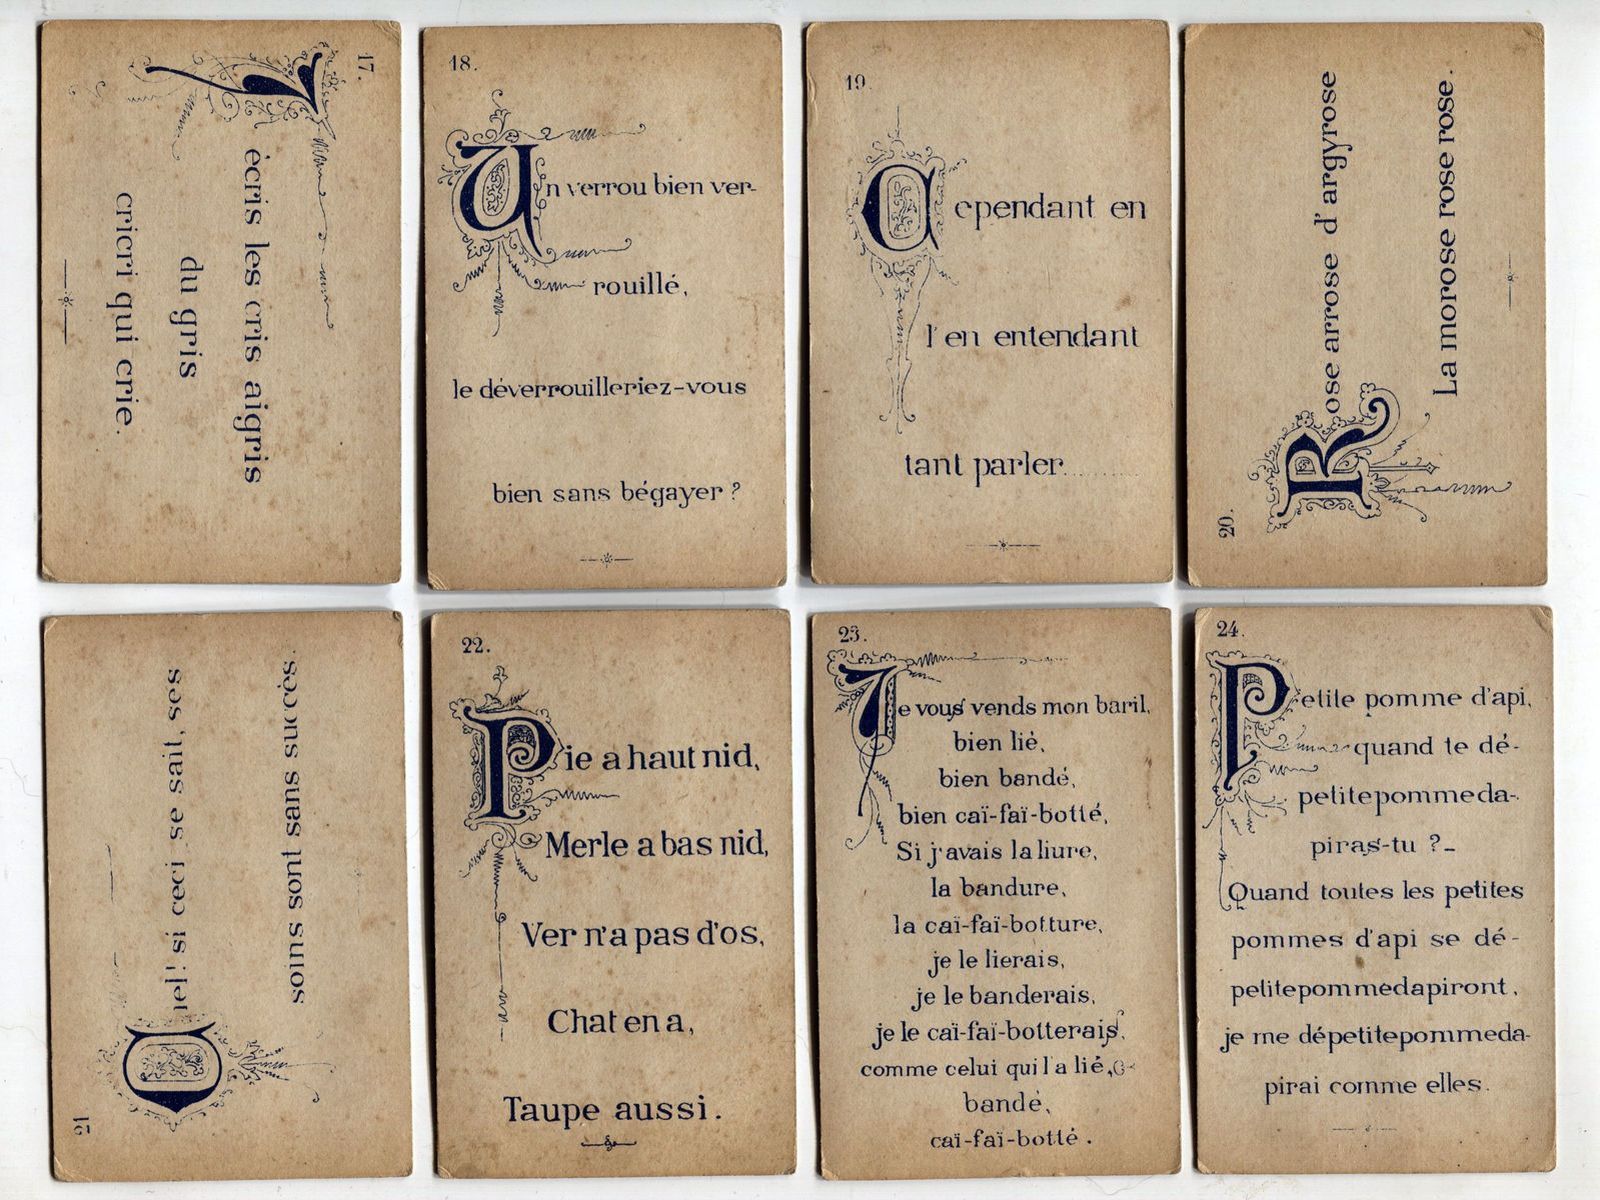 17.
J'écris les cris aigris
du gris
cricri qui crie.
18.
Un verrou bien ver-
rouillé,
le déverrouilleriez-vous
bien sans bégayer ?
19.
Cependant en
l'en entendant
tant parler..........
20.
Rose arrose d'argyrose
La morose rose rose.
21
Ciel! si ceci se sait, ses
soins sont sans succès.
22.
Pie a haut nid,
Merle a bas nid,
Ver n'a pas d'os,
Chat en a,
Taupe aussi.
23.
Je vous vends mon baril,
bien lié,
bien bandé,
bien caï-faï-botté,
Si j'avais la liure,
la bandure,
la caï-faï-botture,
je le lierais,
je le banderais,
je le caï-faï-botterais,
comme celui qui l'a lié,
bandé,
caï-faï-botté.
24.
Petite pomme d'api,
quand te dé-
petitepommeda-
piras-tu ?_
Quand toutes les petites
pommes d'api se dé-
petitepommedapiront,
je me dépetitepommeda-
pirai comme elles.